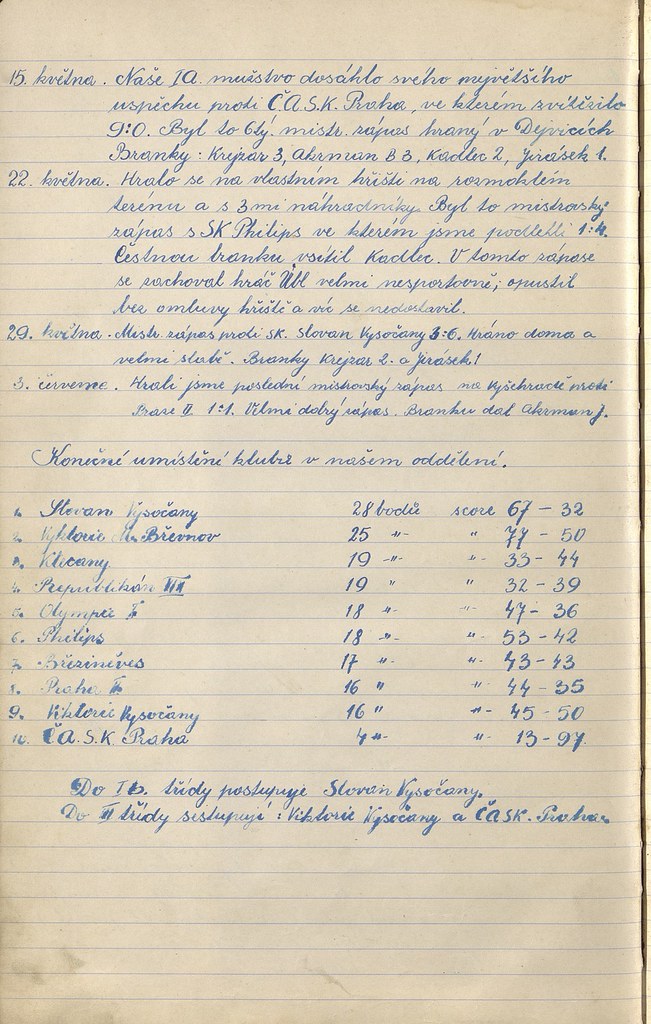 15. května. Naše IA. mužstvo dosáhlo svého největšího
uspěchu proti Č.A.S.K. Praha, ve kterém zvítězilo
9:0. Byl to 6tý. mistr. zápas hraný v Dejvicích
Branky: Krejzar 3, Ahrman B 3, Kadlec 2, Jirásek 1.
22. května. Hrálo se na vlastním hřišti na rozmoklém
terénu a s 3mi náhradníky. Byl to mistrovský
zápas s SK Philips ve kterém jsme podlehli 1:4.
Čestnou branku vsítil Kadlec. V tomto zápase
se zachoval hráč Übl velmi nesportovně; opustil
bez omluvy hřiště a víc se nedostavil.
29. května. Mistr. zápas proti SK. Slovan Vysočany 3:6. Hráno doma a
velmi slabě. Branky Krejzar 2. a Jirásek 1
3. červene. Hráli jsme poslední mistrovský zápas na Vyšehradě proti
Praze II 1:1. Velmi dobrý zápas. Branku dal Ahrman J.
Konečné umístění klubů v našem oddělení.
1. Slovan Vysočany 28 bodů score 67 – 32
2. Vyktorie Břevnov 25 -"- " 77 – 50
3. Klecany 19 -"- " 33 – 44
4. Republikán VIII 19 " " 32 – 39
5. Olympie 18 "- "- 47 – 36
6. Philips 18 "- "- 53 – 42
7. Březiněves 17 "- "- 43 – 43
8. Praha II. 16 " "- 44 – 35
9. Viktorie Vysočany 16 " "- 45 – 50
10. ČA.S.K. Praha 4 "- "- 13 – 97.
Do Ib. třídy postupuje Slovan Vysočany.
Do II třídy sestupují: Viktorie Vysočany a ČASK. Praha.